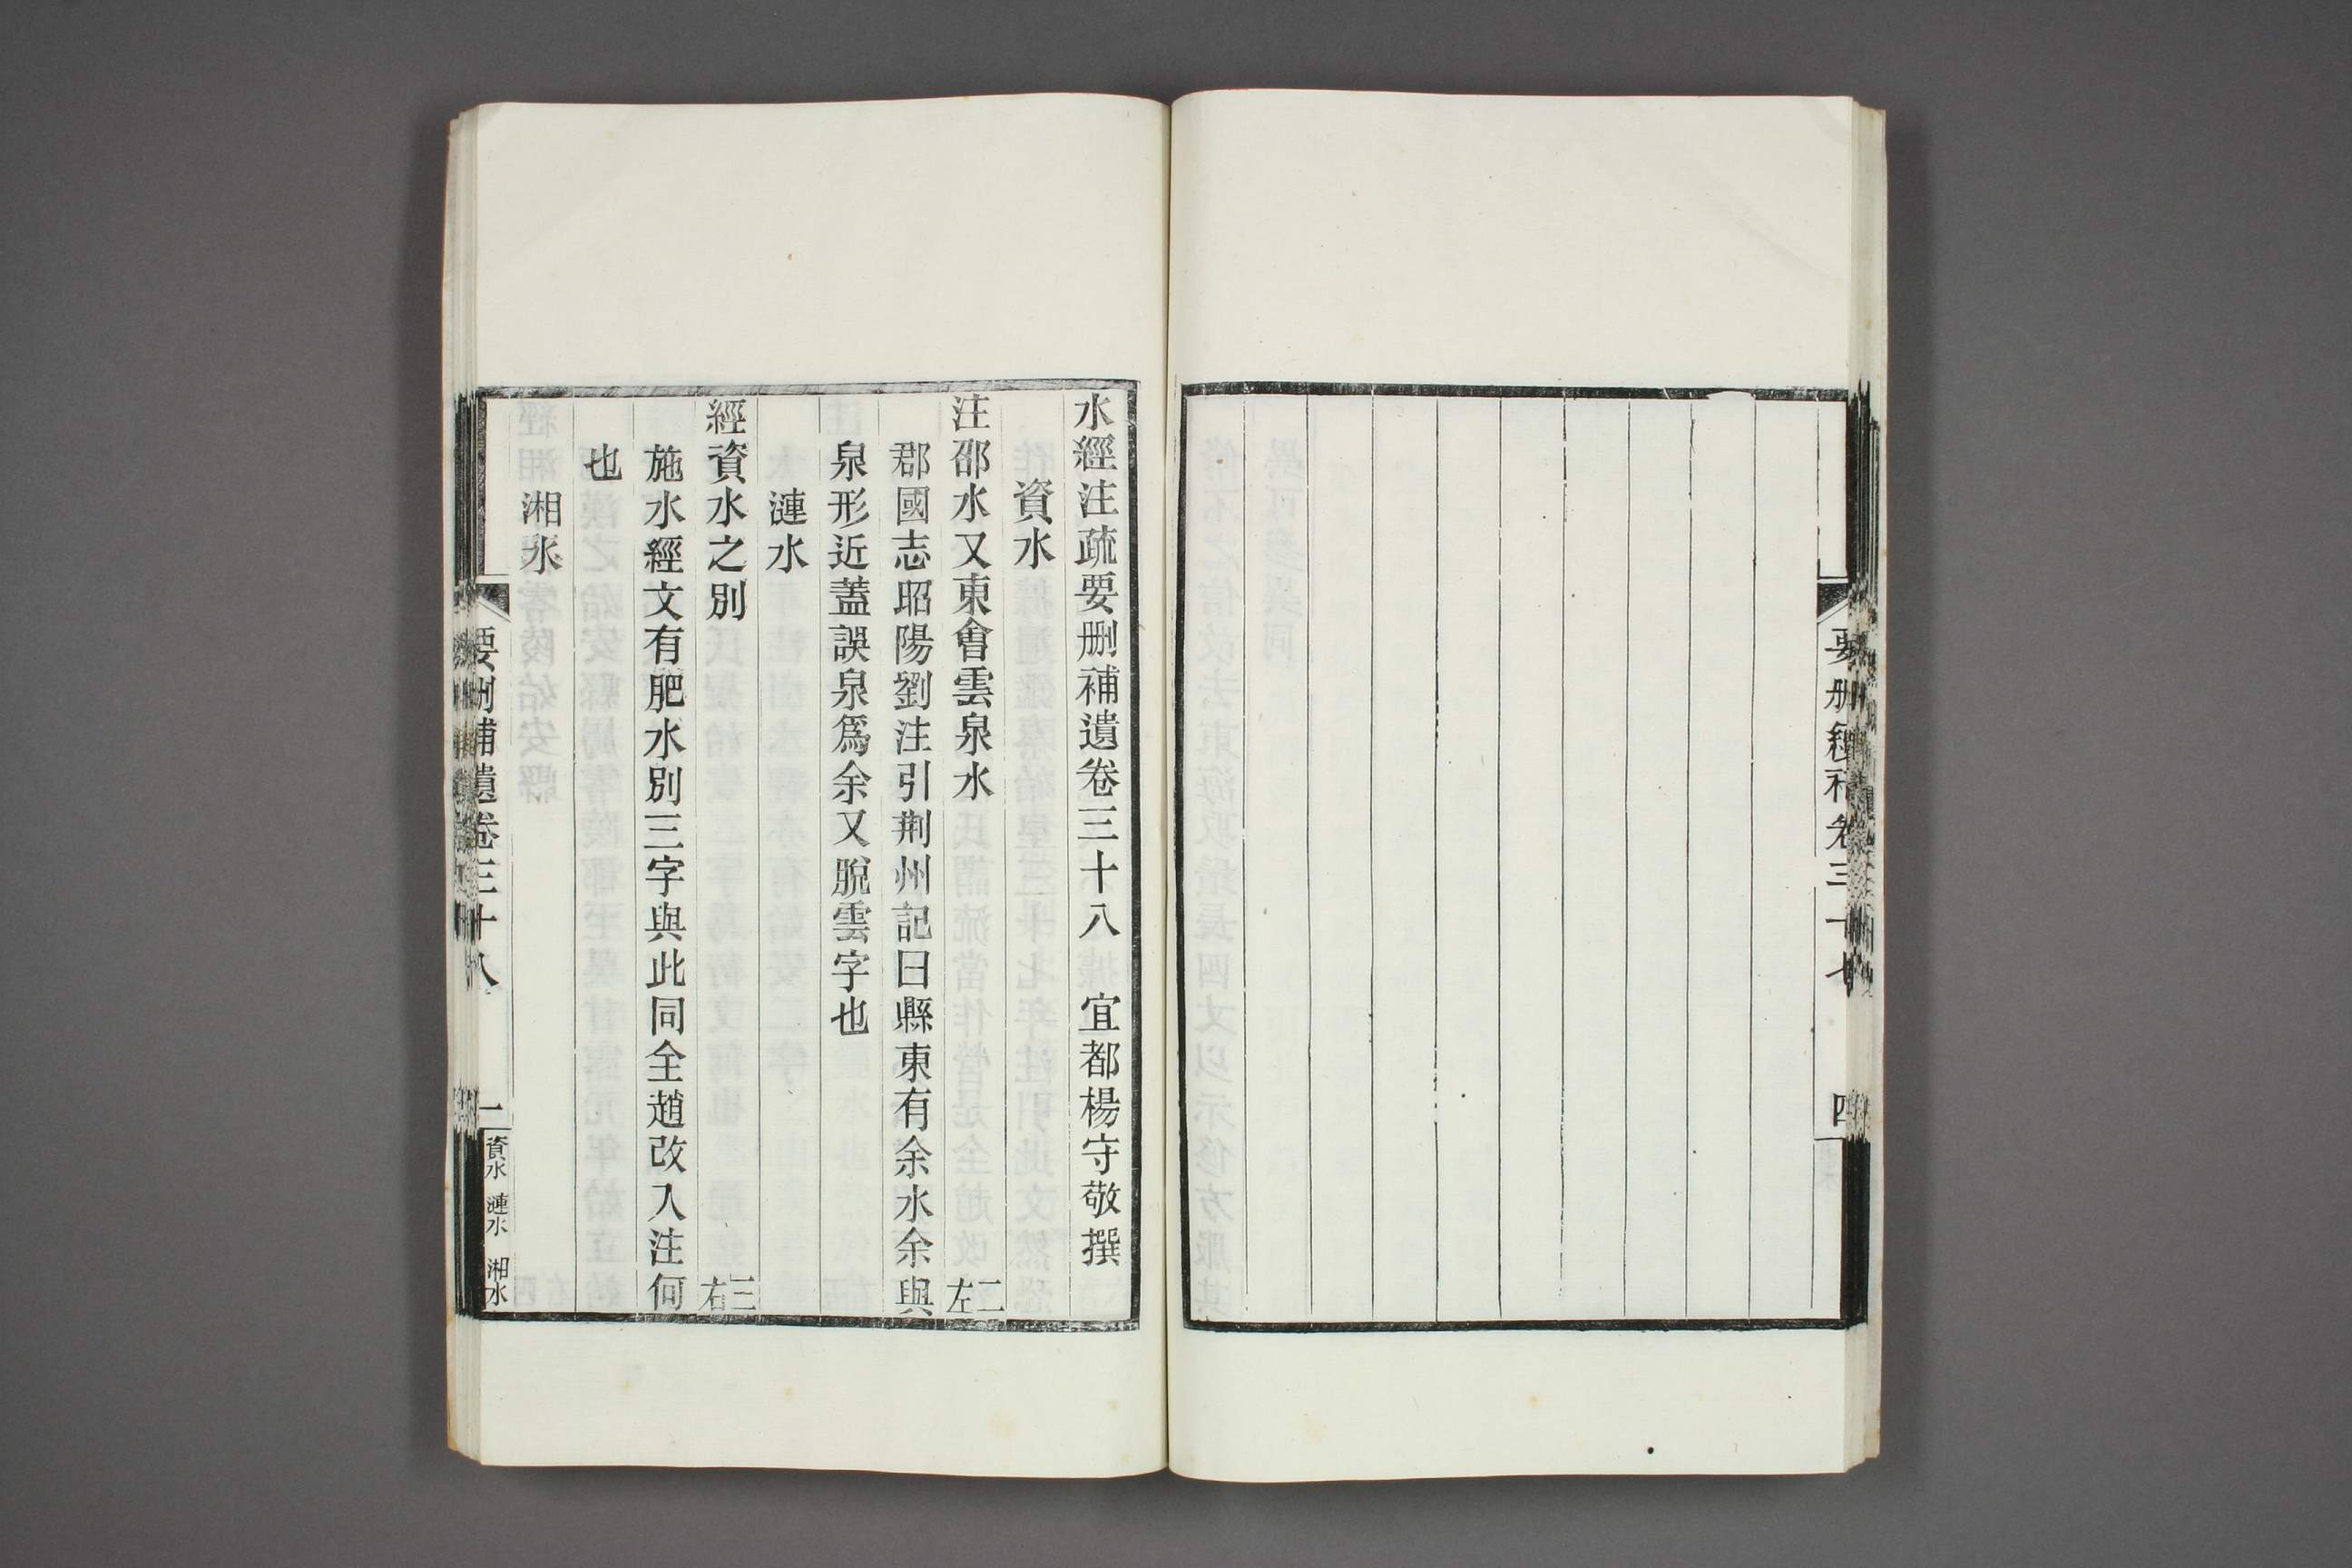 水經注疏要删補遺卷三十八　宜都楊守敬撰
資水
注邵水又東會雲泉水　二左
郡國志昭陽劉注引荆州記曰縣東有余水余與
泉形近蓋誤泉爲余又脫雲字也
漣水
經資水之別　三右
施水經文有肥水別三字與此同全趙改入注何
也
湘水
要刪補遺卷三十八　一　資水　漣水　湘水